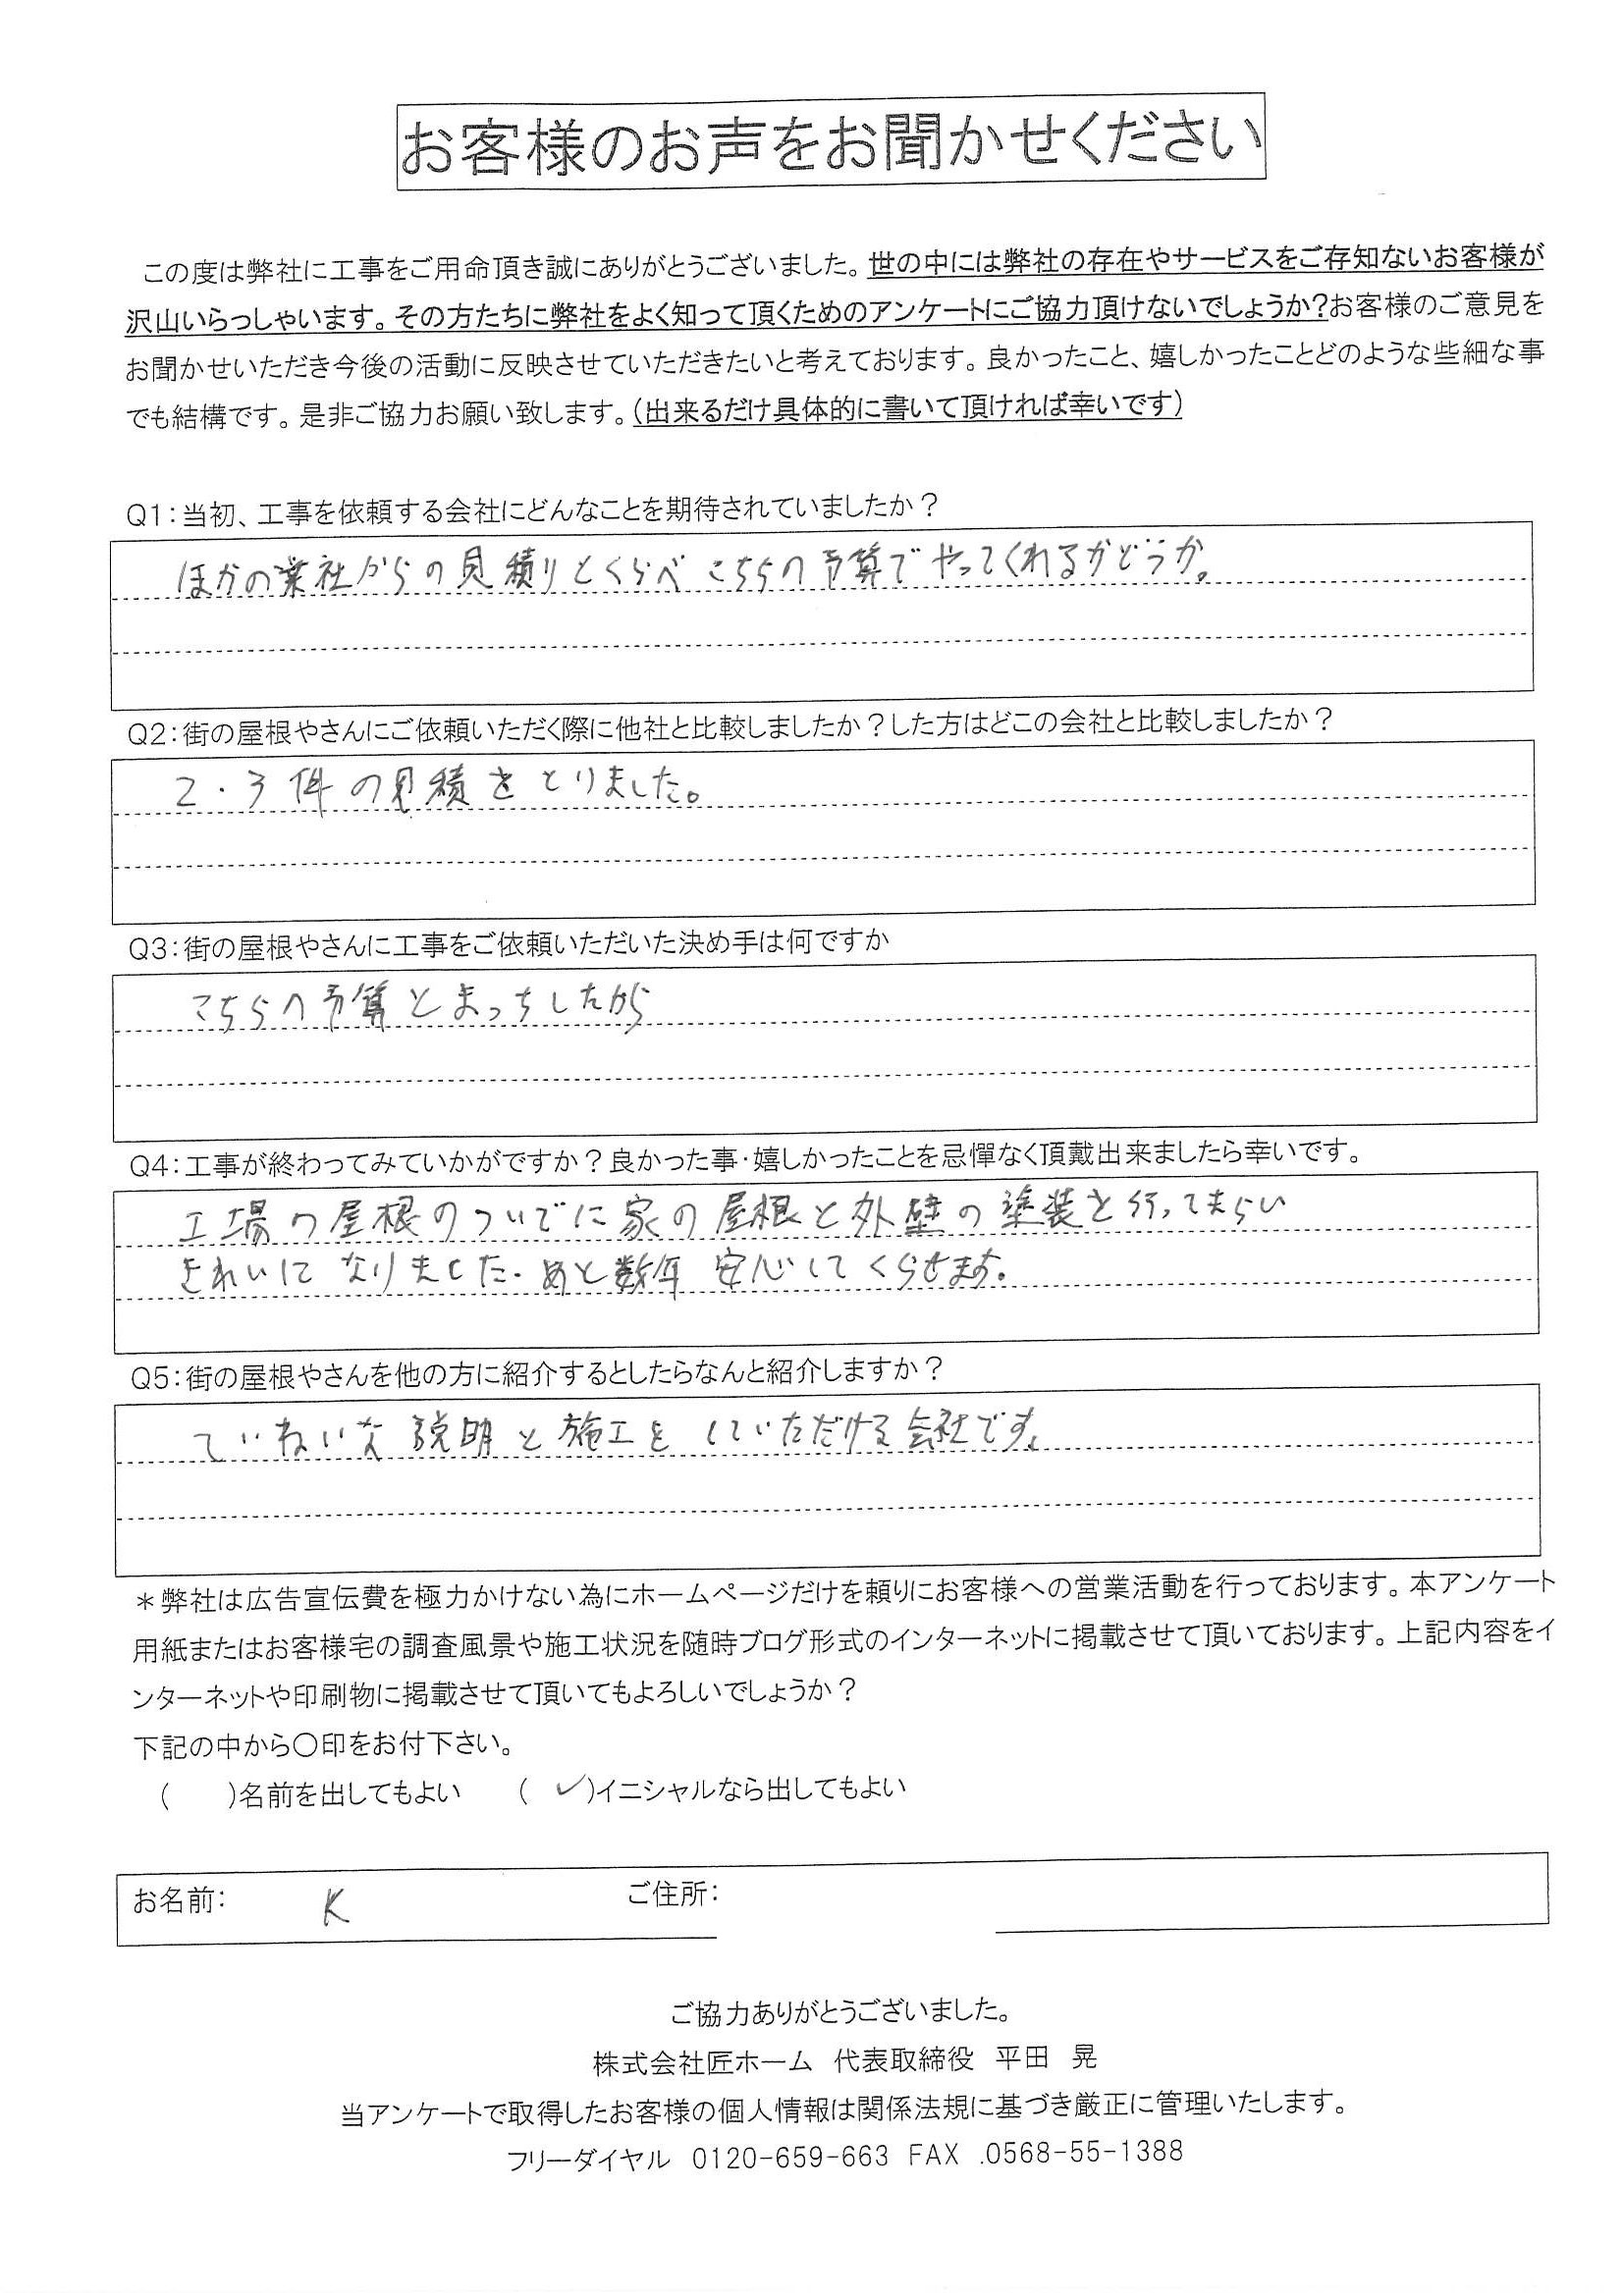 お客様のお声をお聞かせください
この度は弊社に工事をご用命頂き誠にありがとうございました。世の中には弊社の存在やサービスをご存知ないお客様が
沢山いらっしゃいます。その方たちに弊社をよく知って頂くためのアンケートにご協力頂けないでしょうか?お客様のご意見を
お聞かせいただき今後の活動に反映させていただきたいと考えております。良かったこと、嬉しかったことどのような些細な事
でも結構です。是非ご協力お願い致します。(出来るだけ具体的に書いて頂ければ幸いです)
Q1:当初、工事を依頼する会社にどんなことを期待されていましたか?
ほかの業社からの見積りとくらべこちらの予算でやってくれるかどうか。
Q2:街の屋根やさんにご依頼いただく際に他社と比較しましたか?した方はどこの会社と比較しましたか?
2・3件の見積をとりました。
Q3:街の屋根やさんに工事をご依頼いただいた決め手は何ですか
こちらの予算とまっちしたから
Q4:工事が終わってみていかがですか?良かった事・嬉しかったことを忌憚なく頂戴出来ましたら幸いです。
工場の屋根のついでに家の屋根と外壁の塗装を行ってもらい
きれいになりました。あと数年安心してくらせます。
Q5:街の屋根やさんを他の方に紹介するとしたらなんと紹介しますか?
ていねいな説明と施工をしていただける会社です。
*弊社は広告宣伝費を極力かけない為にホームページだけを頼りにお客様への営業活動を行っております。本アンケート
用紙またはお客様宅の調査風景や施工状況を随時ブログ形式のインターネットに掲載させて頂いております。上記内容をイ
ンターネットや印刷物に掲載させて頂いてもよろしいでしょうか?
下記の中から〇印をお付下さい。
(　　)名前を出してもよい　　(　✓)イニシャルなら出してもよい
お名前: K ご住所:
ご協力ありがとうございました。
株式会社匠ホーム　代表取締役　平田　晃
当アンケートで取得したお客様の個人情報は関係法規に基づき厳正に管理いたします。
フリーダイヤル　0120-659-663 FAX .0568-55-1388